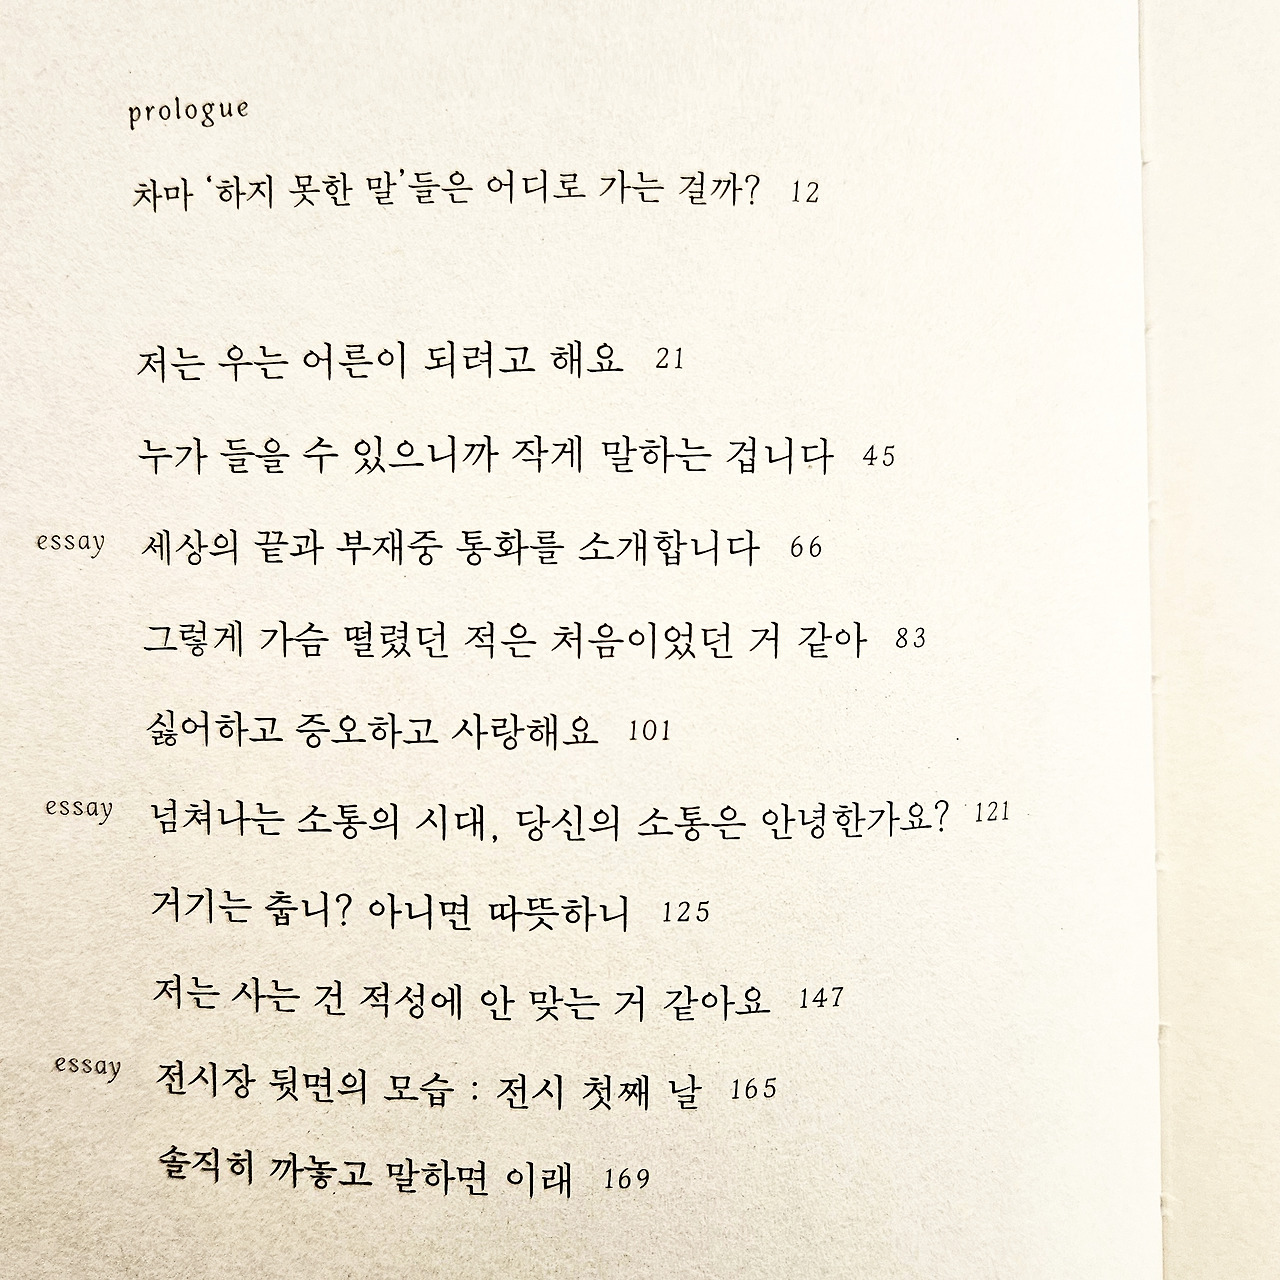 prologue
차마 ‘하지 못한 말’들은 어디로 가는 걸까? 12
저는 우는 어른이 되려고 해요 21
누가 들을 수 있으니까 작게 말하는 겁니다 45
essay 세상의 끝과 부재중 통화를 소개합니다 66
그렇게 가슴 떨렸던 적은 처음이었던 거 같아 83
싫어하고 증오하고 사랑해요 101
essay 넘쳐나는 소통의 시대, 당신의 소통은 안녕한가요? 121
거기는 춥니? 아니면 따뜻하니 125
저는 사는 건 적성에 안 맞는 거 같아요 147
essay 전시장 뒷면의 모습 : 전시 첫째 날 165
솔직히 까놓고 말하면 이래 169